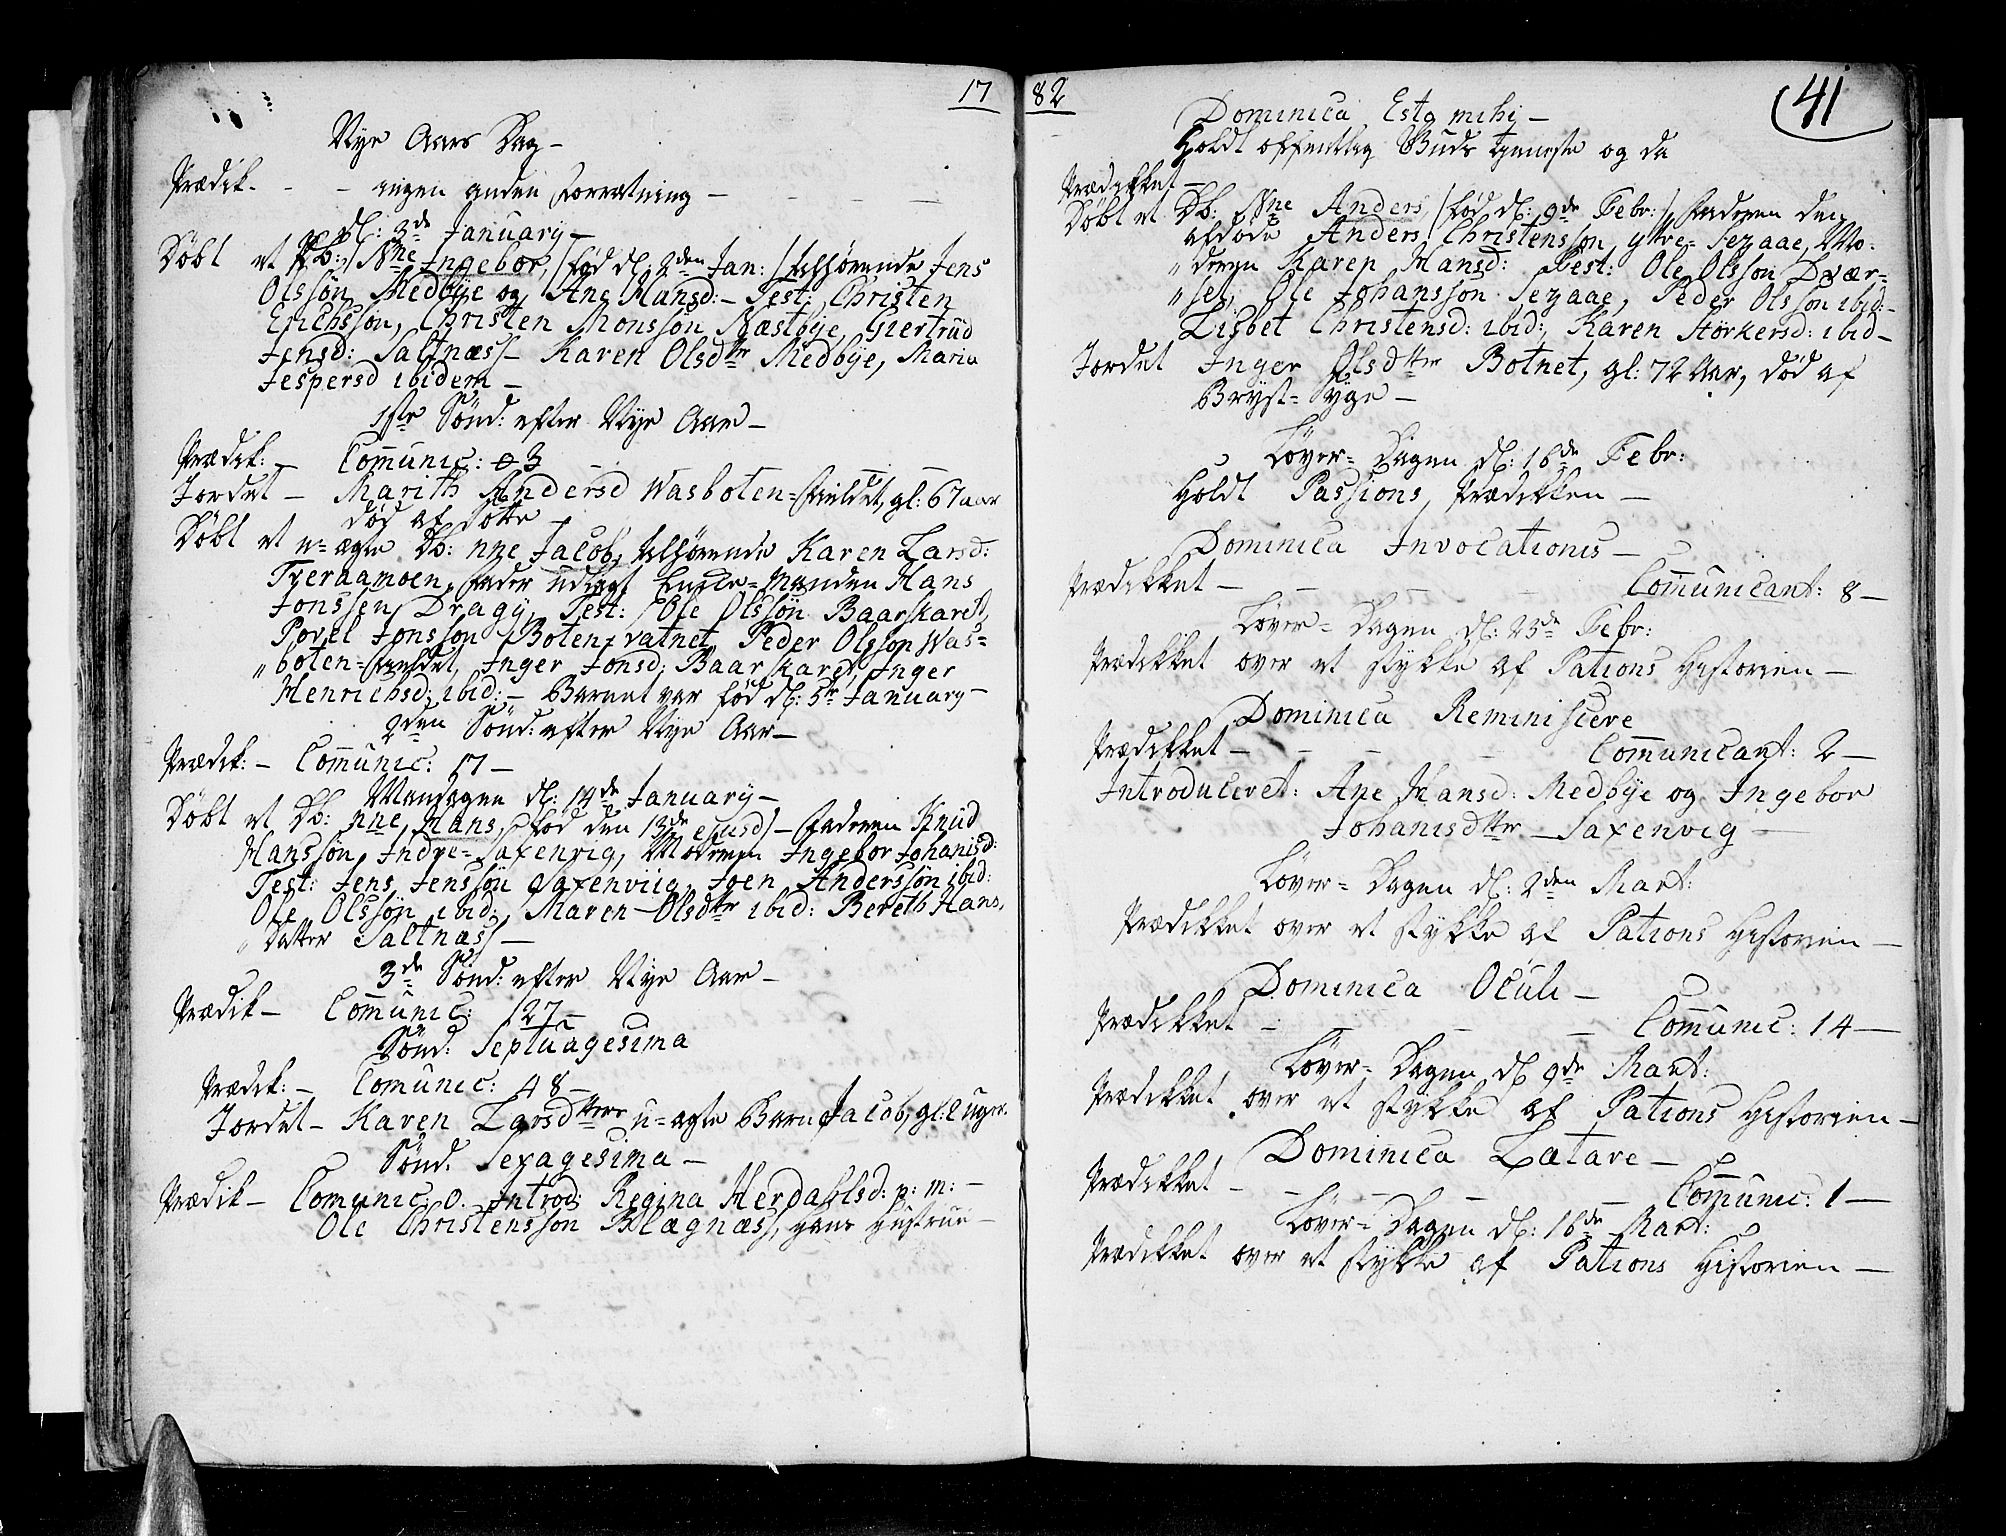 17
Nye Aars Dag –
Prædik. - - ingen anden Forretning –
d: 3de January –
Døbt et Db: Nne Ingebor, /:fød d: 2den Jan:/ tilhørende Jens
Olssøn Medbÿe og Ane Hansd: – Test: Christen
Erichssøn, Christen Monssøn Næstbÿe, Giertrud
Jensd: Saltnæss – Karen Olsdttr Medbÿe, Maria
Jespersd ibidem –
1ste Sönd: efter Nye Aar –
Prædik: – Comunic: 3
Jordet – Marith Andersd Wasboten-Fieldet, gl: 67 aar
død af Sotte
Døbt et u-ægte Db: nne Jacob, tilhørende Karen Larsd:
Tveraamoen, Fader udlagt Enke-Manden Hans
Jonssen Dragÿ, Test: Ole Olssøn Baarskaret,
Povel Jonssøn Botenvatnet, Peder Olssøn Was-
"boten-Fieldet, Inger Jonsd: Baarskaret, Inger
Henrichsd: ibid: – Barnet var fød d: 5te January –
2den Sönd: efter Nye Aar –
Prædik: – Comunic: 17 –
Mandagen d: 14de January –
Døbt et Db: nne Hans, /: fød den 13de ejusd/ – Faderen Knud
Hanssøn Indre-Saxenvig, Moderen Ingebor Johanisd:
Test: Jens Jenssøn Saxenviig, Joen Anderssøn ibid:
Ole Olssøn ibid: Maren Olsdttr ibid: Bereth Hans,
"Datter Saltnæss –
3de Sönd: efter Nye Aar –
Prædik – Comunic: 27 –
Sönd: Septuagesima
Prædik: – Comunic: 48 –
Jordet – Karen Larsdtters u-ægte Barn Jacob, gl: 2 uger.
Sönd. Sexagesima –
Prædik – Comunic: 0. Introd: Regina Herdahlsd: p: m: –
Ole Christenssøn Blægnæss, hans Hustrue –
82
41
Dominica Esto mihi –
Holdt offentlig Guds tieneste og da
Prædikket –
Døbt et Db: Nne Anders, /:fød d: 9de Febr:/ Faderen den
afdøde Anders Christenssøn ytre-Sezaae, Mo-
"deren Karen Hansd: Test: Ole Olssøn Dvær-
"set, Ole Johanssøn Sezaae, Peder Olssøn ibid: –
Lisbet Christensd: ibid:, Karen Störkersd: ibid –
Jordet Inger Olsdttr Botnet, gl: 72 Aar, død af
Bryst-Syge –
Løver-Dagen d: 16de Febr:
Holdt Passions Prædikken –
Dominica Invocationis –
Prædikket – – – Comunicant: 8 –
Løver-Dagen d: 23de Febr:
Prædikket over et stykke af Pations Historien –
Dominica Reminiscere
Prædikket – – – – Comunicant: 2 –
Introduceret: Ane Hansd: Medbÿe og Ingebor
Johanisdttr – Saxenvig –
Løver-Dagen d: 2den Mart:
Prædikket over et stykke af Pations Historien –
Dominica Oculi –
Prædikket – – – – Comunic: 14 –
Løver-Dagen d: 9de Mart:
Prædikket over et stykke af Pations Historien –
Dominica Lætare –
Prædikket – – – – – Comunic: 1 –
Løver-Dagen d: 16de Mart:
Prædikket over et stykke af Pations Historien –